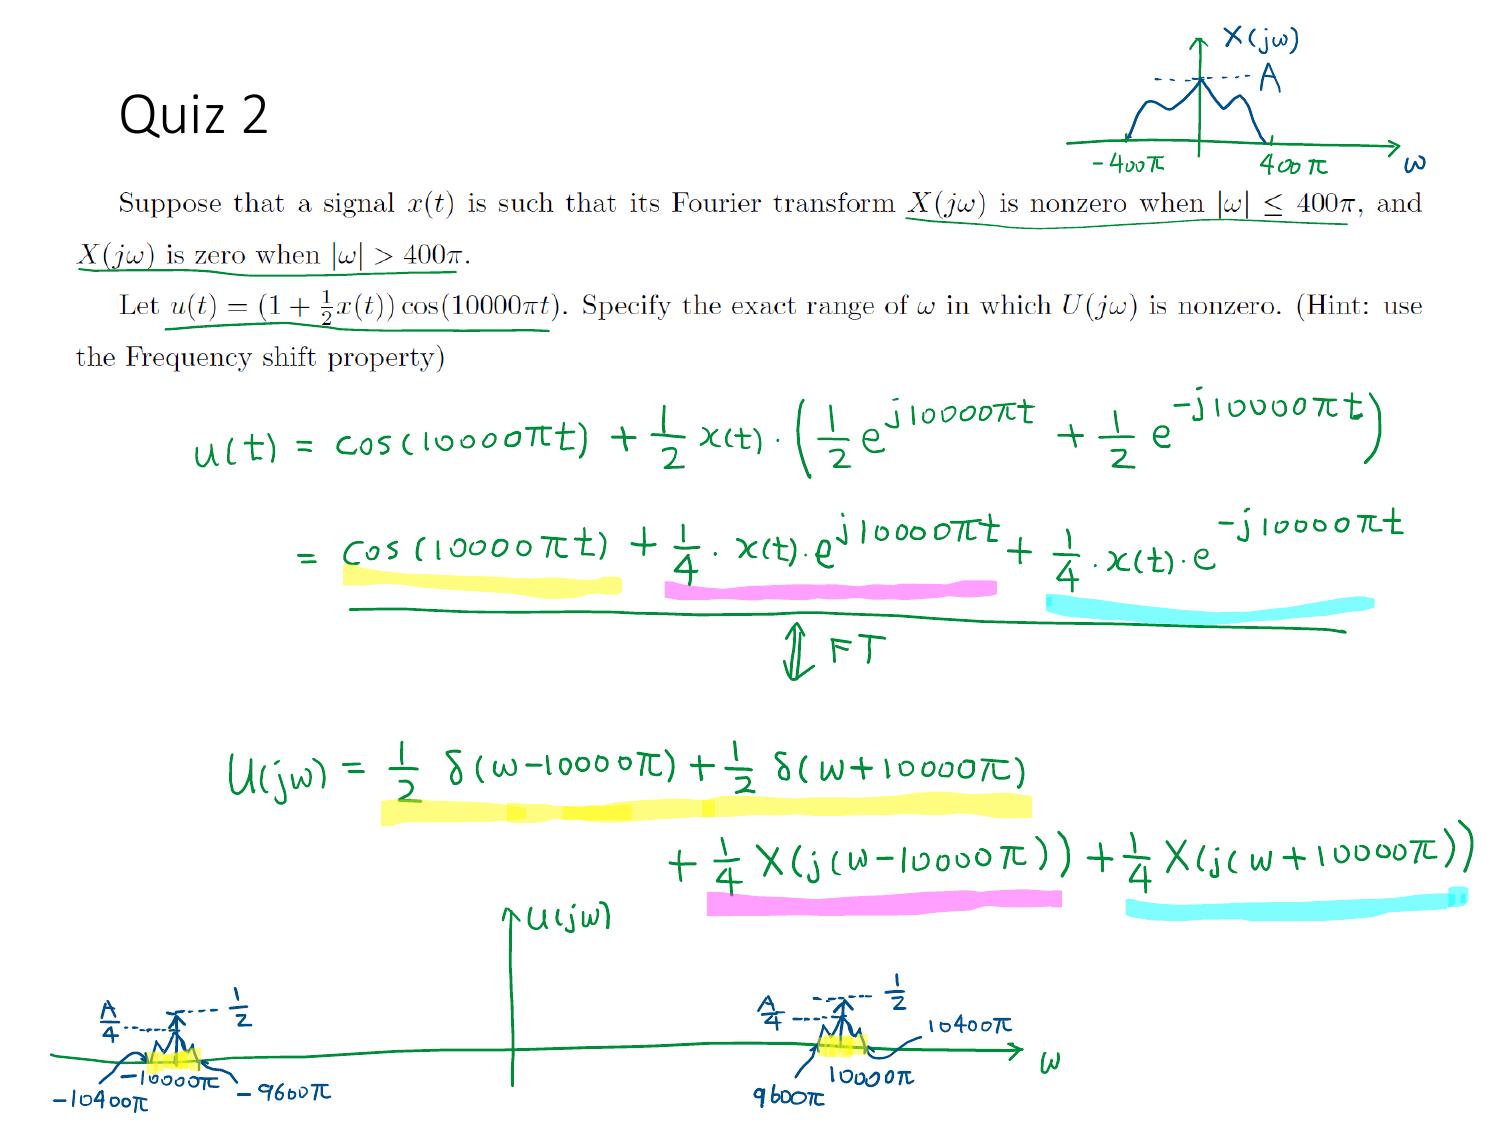 X(jω)
A
Quiz 2
-400π 400π ω
Suppose that a signal x(t) is such that its Fourier transform X(jω) is nonzero when |ω| ≤ 400π, and
X(jω) is zero when |ω| > 400π.
Let u(t) = (1 + 1/2 x(t)) cos(10000πt). Specify the exact range of ω in which U(jω) is nonzero. (Hint: use
the Frequency shift property)
u(t) = cos(10000πt) + 1/2 x(t) · (1/2 e^{j10000πt} + 1/2 e^{-j10000πt})
= cos(10000πt) + 1/4 · x(t) · e^{j10000πt} + 1/4 · x(t) · e^{-j10000πt}
FT
U(jω) = 1/2 δ(ω-10000π) + 1/2 δ(ω+10000π)
+ 1/4 X(j(ω-10000π)) + 1/4 X(j(ω+10000π))
U(jω)
A/4 1/2 A/4 1/2
10400π
ω
-10400π -10000π -9600π 9600π 10000π